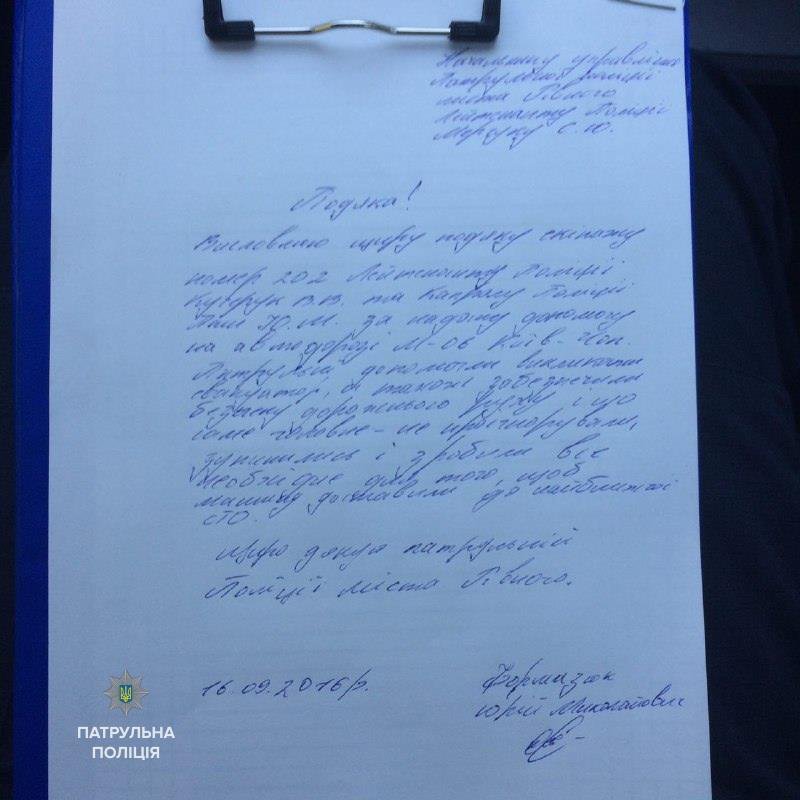 Начальнику управління
Патрульної поліції
міста Рівного
Лейтенанту Поліції
С. Ю.
Подяка!
Висловлюю щиру подяку екіпажу
номер 202 Лейтенанту Поліції
В.В. та Капралу Поліції
Ю.М. за надану допомогу
на автодорозі М-06 Київ-Чоп.
Патрульні допомогли викликати
евакуатор, а також забезпечили
безпеку дорожнього руху і що
саме головне - не проігнорували,
зупинились і зробили все
необхідне для того, щоб
машину доставили до найближчої
СТО.
Щиро дякую патрульній
Поліції міста Рівного.
16.09.2016р.
Формазюк
Юрій Миколайович
ПАТРУЛЬНА
ПОЛІЦІЯ